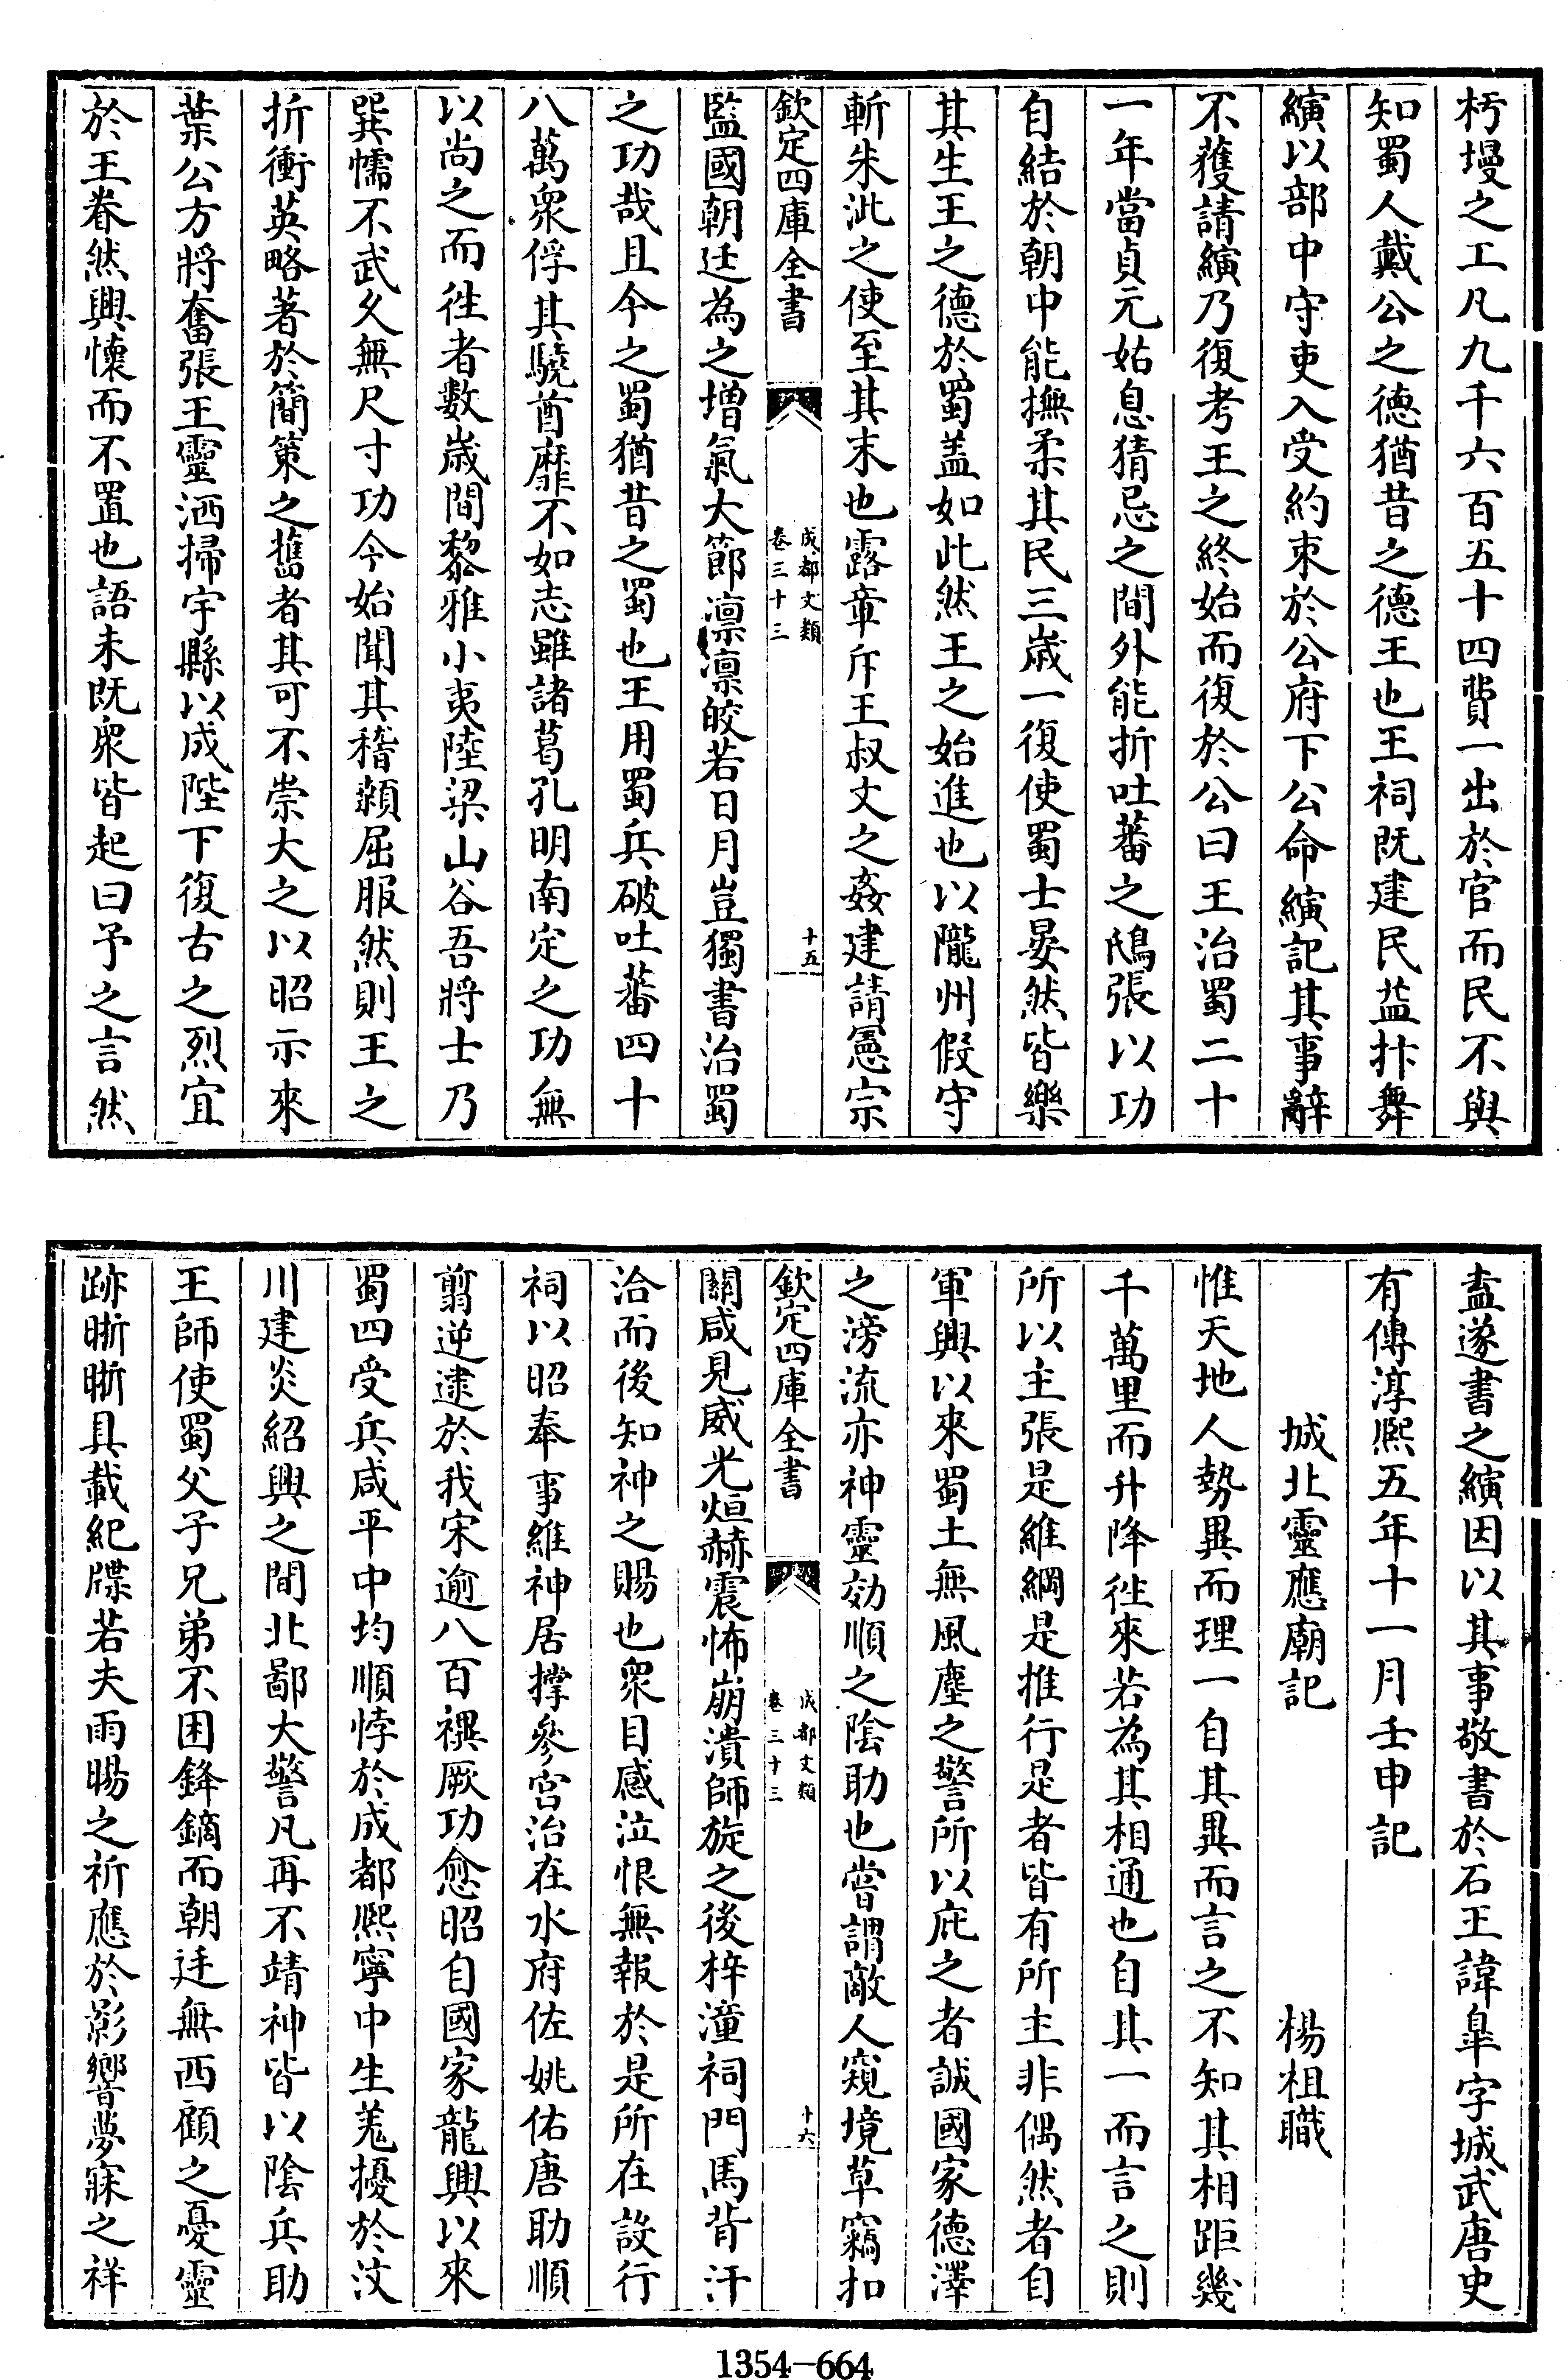 杇墁之工凡九千六百五十四費一出於官而民不與
知蜀人戴公之德猶昔之德王也王祠既建民益抃舞
縯以部中守吏入受約束於公府下公命縯記其事辭
不獲請縯乃復考王之終始而復於公曰王治蜀二十
一年當貞元姑息猜忌之間外能折吐蕃之鴟張以功
自結於朝中能撫柔其民三歳一復使蜀士晏然皆樂
其生王之德於蜀盖如此然王之始進也以隴州假守
斬朱泚之使至其末也露章斥王叔文之姦建請憲宗
欽定四庫全書
成都文類
卷三十三
十五
監國朝廷為之増氣大節凛凛皎若日月豈獨書治蜀
之功哉且今之蜀猶昔之蜀也王用蜀兵破吐蕃四十
八萬衆俘其驍酋靡不如志雖諸葛孔明南定之功無
以尚之而徃者數歳間黎雅小夷陸梁山谷吾將士乃
巽懦不武乆無尺寸功今始聞其稽顙屈服然則王之
折衝英略著於簡策之舊者其可不崇大之以昭示來
葉公方將奮張王靈洒掃宇縣以成陛下復古之烈宜
於王眷然興懐而不置也語未既衆皆起曰予之言然
盍遂書之縯因以其事敬書於石王諱臯字城武唐史
有傳淳熙五年十一月壬申記
城北靈應廟記
楊祖職
惟天地人勢異而理一自其異而言之不知其相距幾
千萬里而升降徃來若為其相通也自其一而言之則
所以主張是維綱是推行是者皆有所主非偶然者自
軍興以來蜀土無風塵之警所以庇之者誠國家德澤
之滂流亦神靈効順之陰助也嘗謂敵人窺境草竊扣
欽定四庫全書
成都文類
卷三十三
十六
關咸見威光烜赫震怖崩潰師旋之後梓潼祠門馬背汗
洽而後知神之賜也衆目感泣恨無報於是所在設行
祠以昭奉事維神居撑參宫治在水府佐姚佑唐助順
翦逆逮於我宋逾八百禩厥功愈昭自國家龍興以來
蜀四受兵咸平中均順悖於成都熙寧中生羌擾於汶
川建炎紹興之間北鄙大警凡再不靖神皆以陰兵助
王師使蜀父子兄弟不困鋒鏑而朝廷無西顧之憂靈
跡晣晣具載紀牒若夫雨暘之祈應於影響夢寐之祥
1354—664